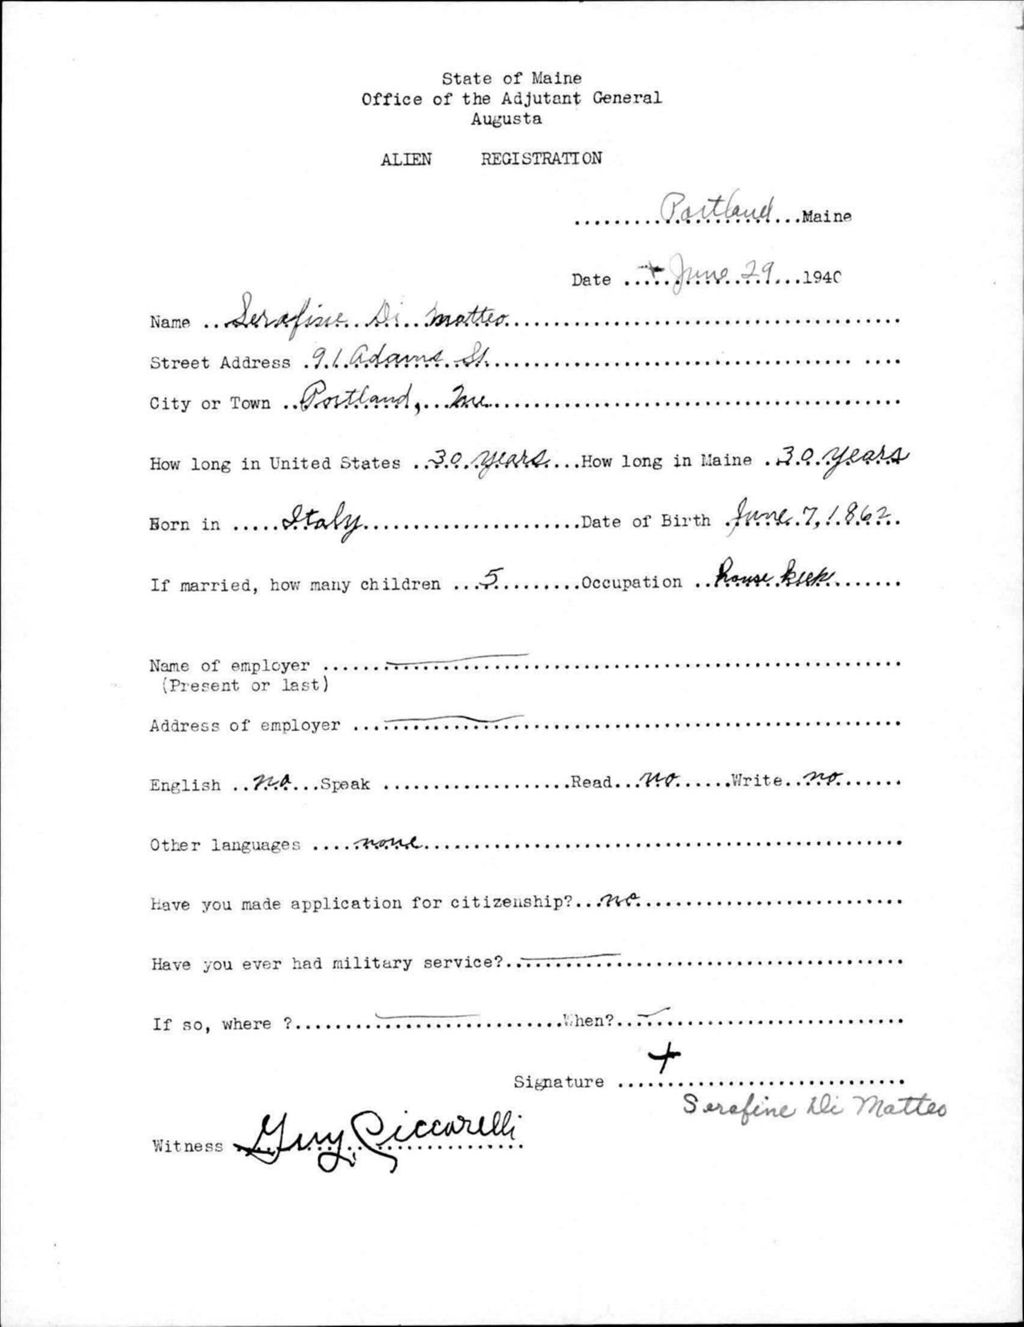 State of Maine
Office of the Adjutant General
Augusta
ALIEN REGISTRATION
.........Portland...Maine
Date ...+ June 29...1940
Name ..Serafine Di Matteo
Street Address .91 Adams St.
City or Town ..Portland, Me.
How long in United States ..30 years...How long in Maine .30 years
Born in .....Italy......Date of Birth .June 7, 1862..
If married, how many children ...5.........Occupation ..house keek.......
Name of employer ......
(Present or last)
Address of employer ...
English ..no...Speak ...................Read...no......Write..no.......
Other languages ....none
Have you made application for citizenship?...no
Have you ever had military service?..
If so, where ?..........When?...
+
Signature ......
Serafine Di Matteo
Witness Guy Piccarelli